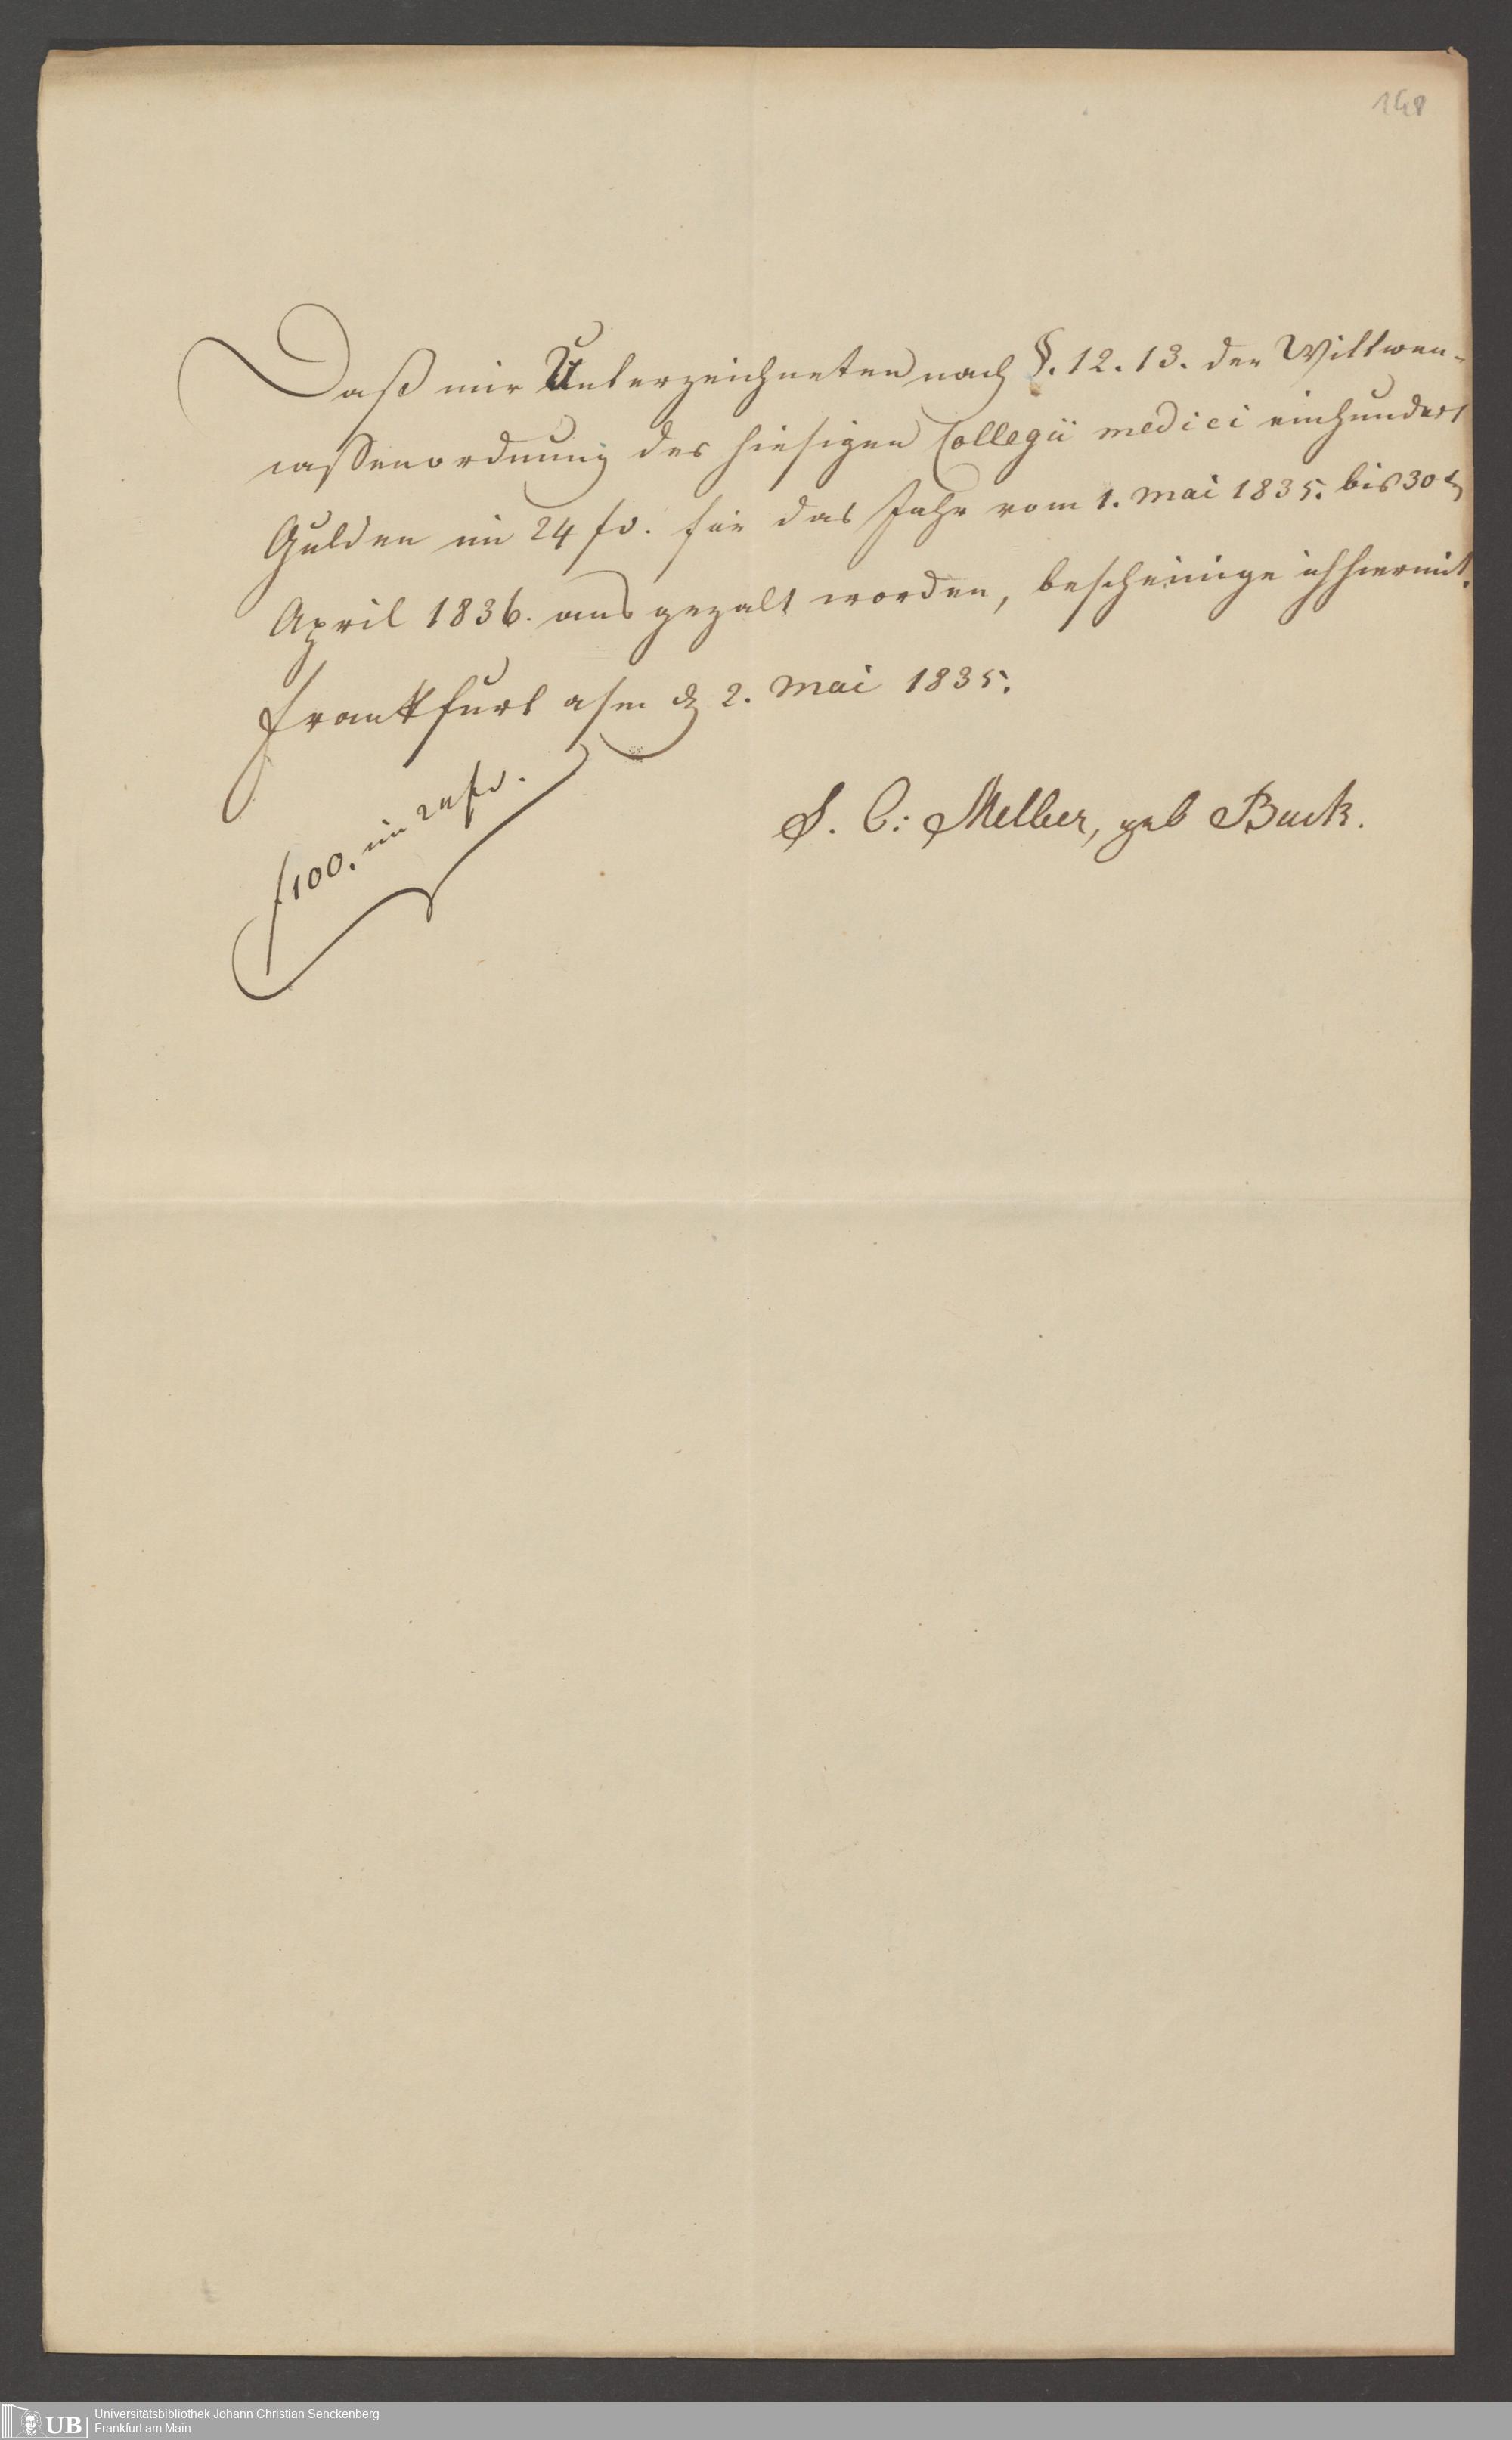 148
Daß mir Unterzeichneten nach §. 12. 13. der Wittwen-
cassenordnung des hiesigen Collegii medici einhundert
Gulden im 24 fl. für das Jahr vom 1. Mai 1835. bis 30
April 1836. ausgezalt worden, bescheinige ich hiermit.
Frankfurt a/m d 2. Mai 1835.
f 100. im 24 fl.
S. C: Melber, geb Buck.
UB Universitätsbibliothek Johann Christian Senckenberg
Frankfurt am Main